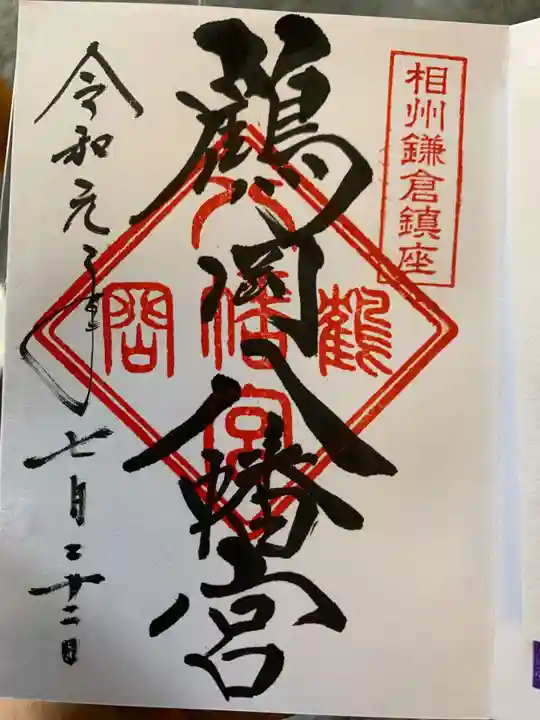 相州鎌倉鎮座
鶴岡八幡宮
鶴
八幡宮
岡
令和元年七月二十二日